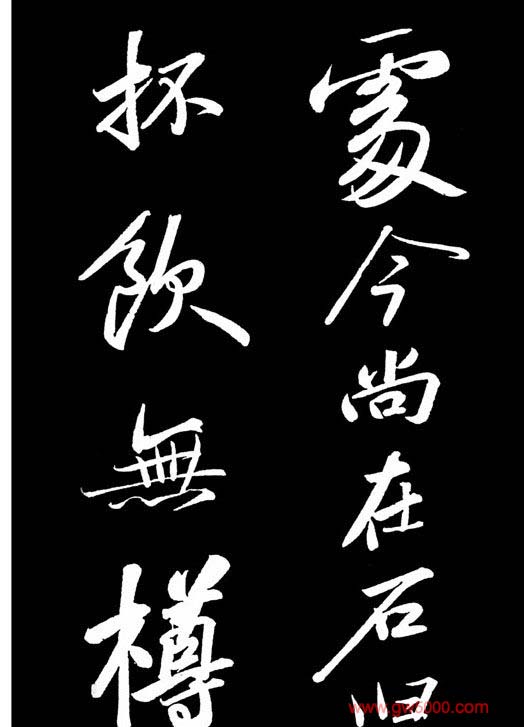 處今尚在石
抔飲無樽
www.gw6000.com